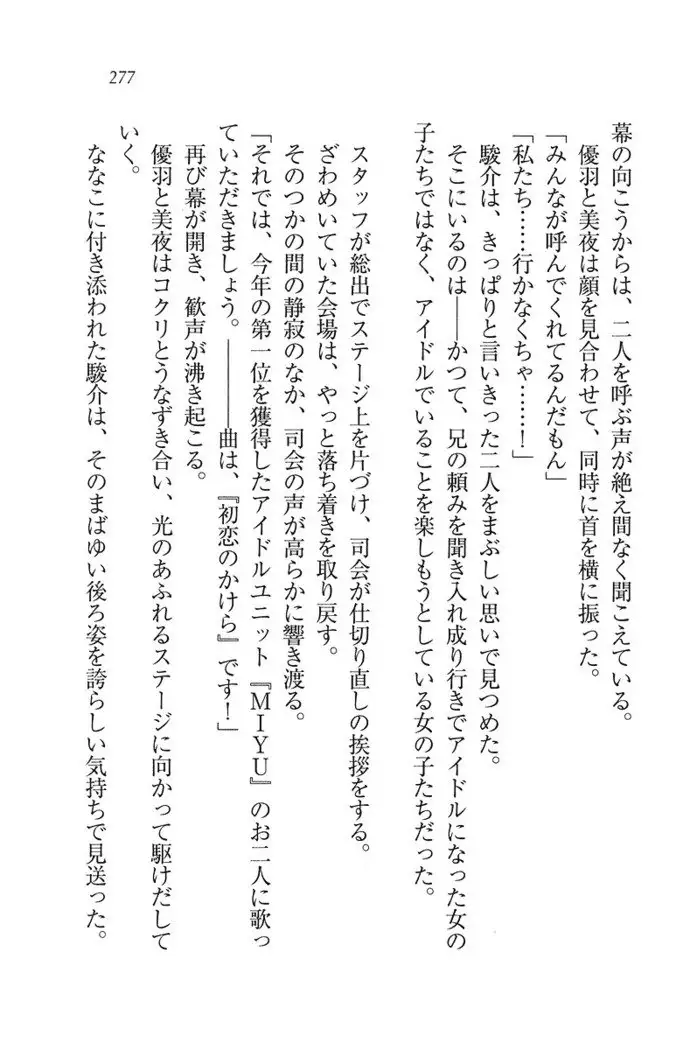 277
幕の向こうからは、二人を呼ぶ声が絶え間なく聞こえている。
優羽と美夜は顔を見合わせて、同時に首を横に振った。
「みんなが呼んでくれてるんだもん」
「私たち……行かなくちゃ……！」
駿介は、きっぱりと言いきった二人をまぶしい思いで見つめた。
そこにいるのは――かつて、兄の頼みを聞き入れ成り行きでアイドルになった女の
子たちではなく、アイドルでいることを楽しもうとしている女の子たちだった。
スタッフが総出でステージ上を片づけ、司会が仕切り直しの挨拶をする。
ざわめいていた会場は、やっと落ち着きを取り戻す。
そのつかの間の静寂のなか、司会の声が高らかに響き渡る。
「それでは、今年の第一位を獲得したアイドルユニット『ＭＩＹＵ』のお二人に歌っ
ていただきましょう。――――曲は、『初恋のかけら』です！」
再び幕が開き、歓声が沸き起こる。
優羽と美夜はコクリとうなずき合い、光のあふれるステージに向かって駆けだして
いく。
ななこに付き添われた駿介は、そのまばゆい後ろ姿を誇らしい気持ちで見送った。